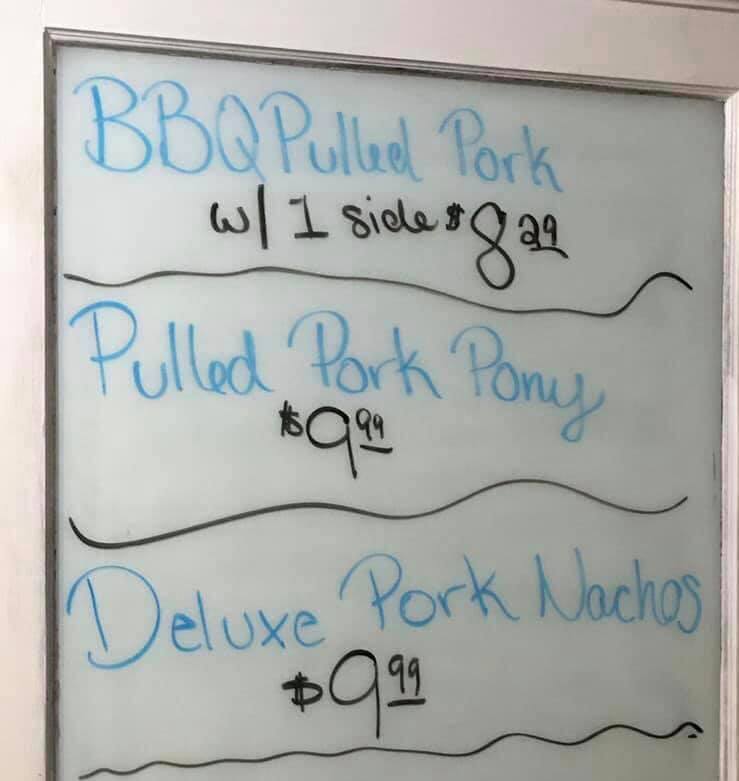 BBQ Pulled Pork
w/ 1 side $8 29
Pulled Pork Pony
$9 99
Deluxe Pork Nachos
$9 99